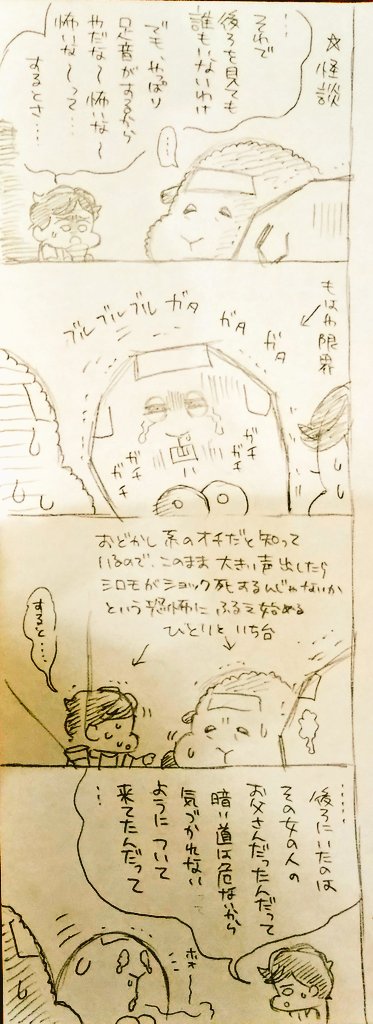 ☆怪談
…
それで
後ろを見ても
誰もいないわけ
でもやっぱり
足音がするから
やだな〜怖いな〜
怖いな〜って…
するとさ…
…
もはや限界
ガタ
ガタ
ガタ
ブルブルブル
ガチ
ガチ
ガチ
ガチ
おどかし系のオチだと知って
いるので、このまま大きい声出したら
シロモがショック死するんじゃないか
という恐怖にふるえ始める
ひとりといち台
すると…
……
後ろにいたのは
その女の人の
お父さんだったんだって
暗い道は危ないから
気づかれない
ようについて
来てたんだって
…
ホォ〜